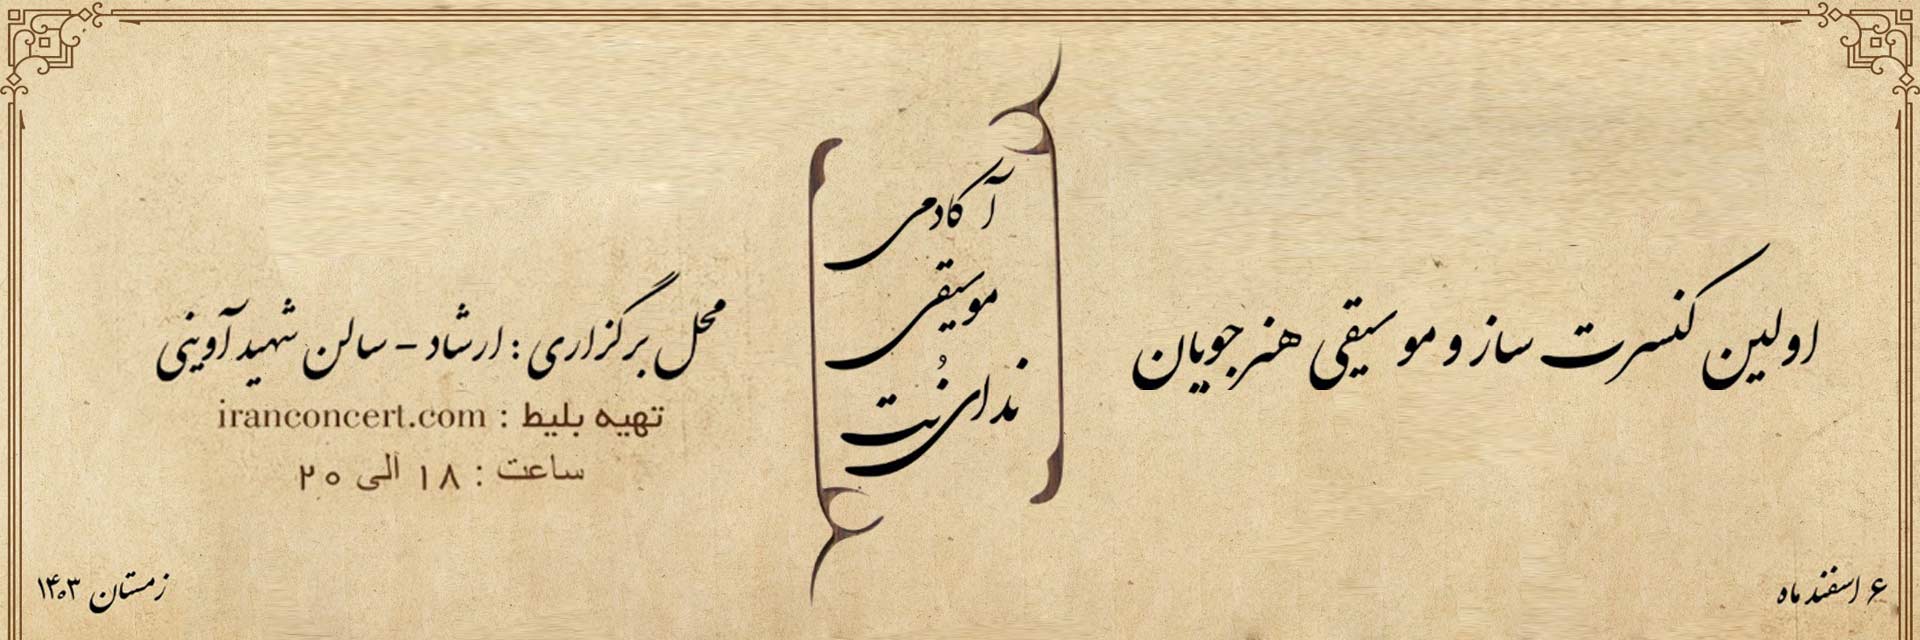 اولین کنسرت ساز و موسیقی هنرجویان
آکادمی
موسیقی
ندای نُت
محل برگزاری : ارشاد - سالن شهید آوینی
تهیه بلیط : iranconcert.com
ساعت : ۱۸ الی ۲۰
۶ اسفند ماه
زمستان ۱۴۰۳